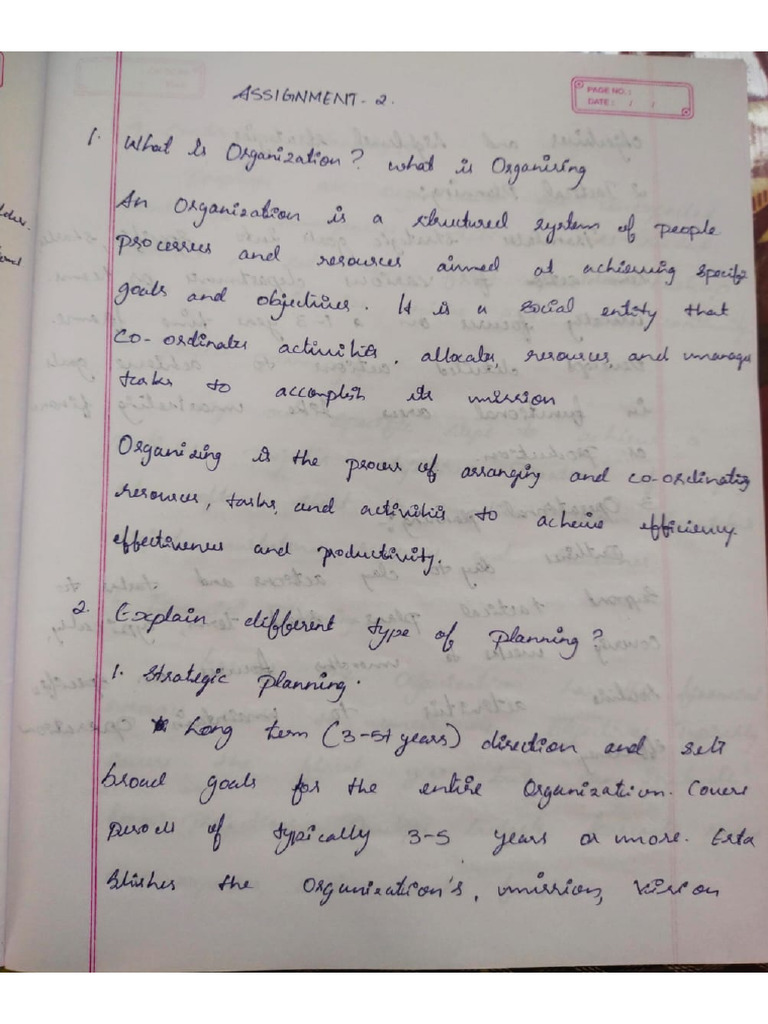 ASSIGNMENT - 2.
PAGE NO.:
DATE: / /
1. What is Organization? what is Organising
An Organization is a structured system of people
processes and resources aimed at achieving specific
goals and objectives. It is a social entity that
co-ordinates activities, allocates, resources and manages
tasks to accomplish its mission
Organizing is the process of arranging and co-ordinating
resources, tasks, and activities to achieve efficiency
effectiveness and productivity.
2. Explain different type of planning?
1. Strategic planning.
* Long term (3-5+ years) direction and sets
broad goals for the entire Organization. Covers
of typically 3-5 years or more. Esta
blishes the Organization's, mission, vision